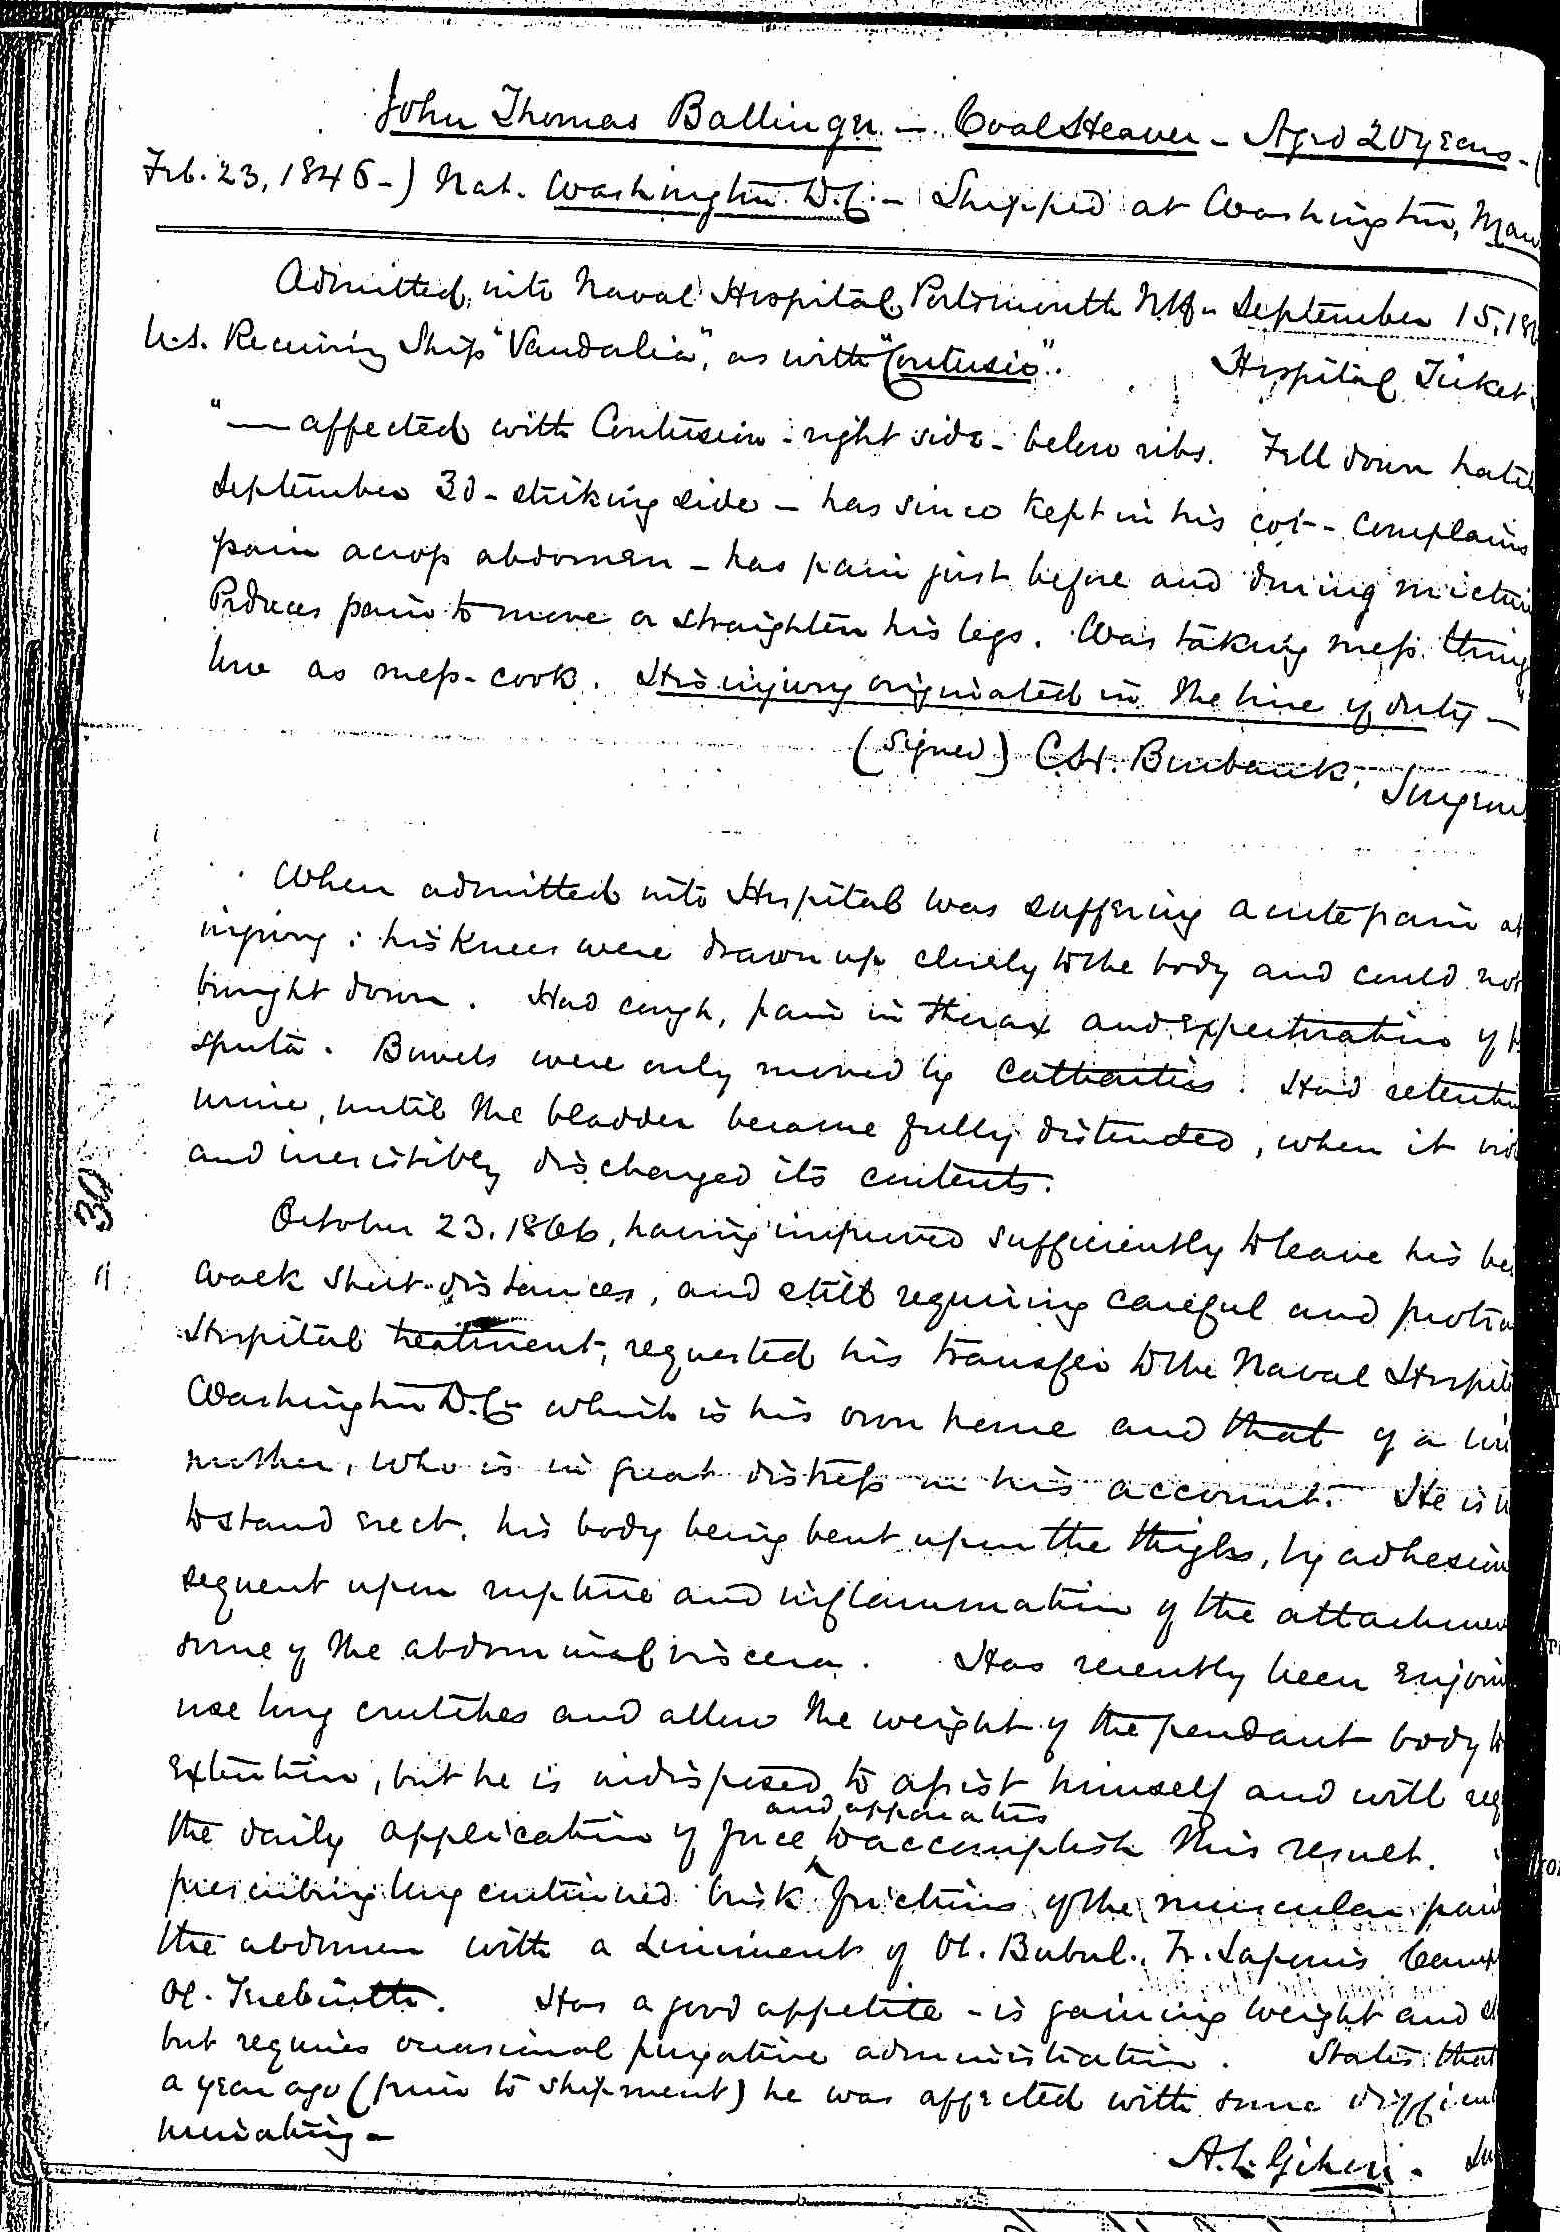 John Thomas Ballinger — Coal Heaver - Aged 20 years - (
Feb. 23, 1846 -) Nat. Washington D.C. - Shipped at Washington,
Admitted into Naval Hospital Portsmouth NH - September 15, 18
U.S. Receiving Ship "Vandalia", as with "Contusio". Hospital Ticket.
"— affected with Contusion - right side - below ribs. Fell down hatch
September 3d - striking side - has since kept in his cot - complains
pain across abdomen - has pain just before and during
Produces pain to move or straighten his legs. Was taking mess things
line as mess-cook. His injury originated in the line of duty —"
(Signed) C.H. Burbank, Surgeon
When admitted into Hospital was suffering acute pain at
injury: his knees were drawn up closely to the body and could not
brought down. Had cough, pain in thorax and expectoration of
sputa. Bowels were only moved by cathartics. Had retention
urine, until the bladder became fully distended, when it
and irresistibly discharged its contents.
October 23. 1866, having improved sufficiently to leave his
walk short distances, and still requiring careful and
Hospital treatment, requested his transfer to the Naval Hospital
Washington D.C. which is his own home and that of a
mother, who is in great distress on his account. He is
to stand erect, his body being bent upon the thighs, by adhesion
sequent upon rupture and inflammation of the attachmen
some of the abdominal viscera. Has recently been enjoin
use long crutches and allow the weight of the pendant body to
extention, but he is indisposed to assist himself and will req
and apparatus
the daily application of force ^ to accomplish this result.
prescribing long continued brisk frictions of the muscular
the abdomen with a Liniment of Ol. Bubul., Tr. Saponis Camp
Ol. Terebinth. Has a good appetite - is gaining weight and
but requires occasional purgative administration. States that
a year ago (prior to shipment) he was affected with some difficul
urinating -
A.L. Gihon.
30
"